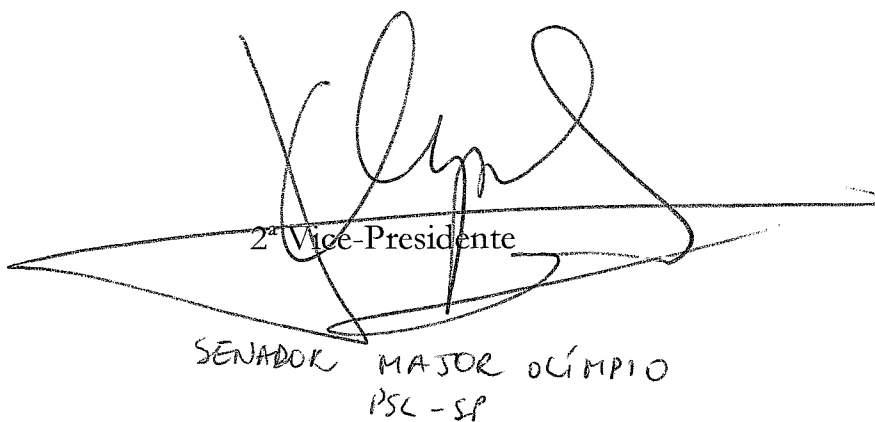 2ª Vice-Presidente
SENADOR MAJOR OLÍMPIO
PSL - SP